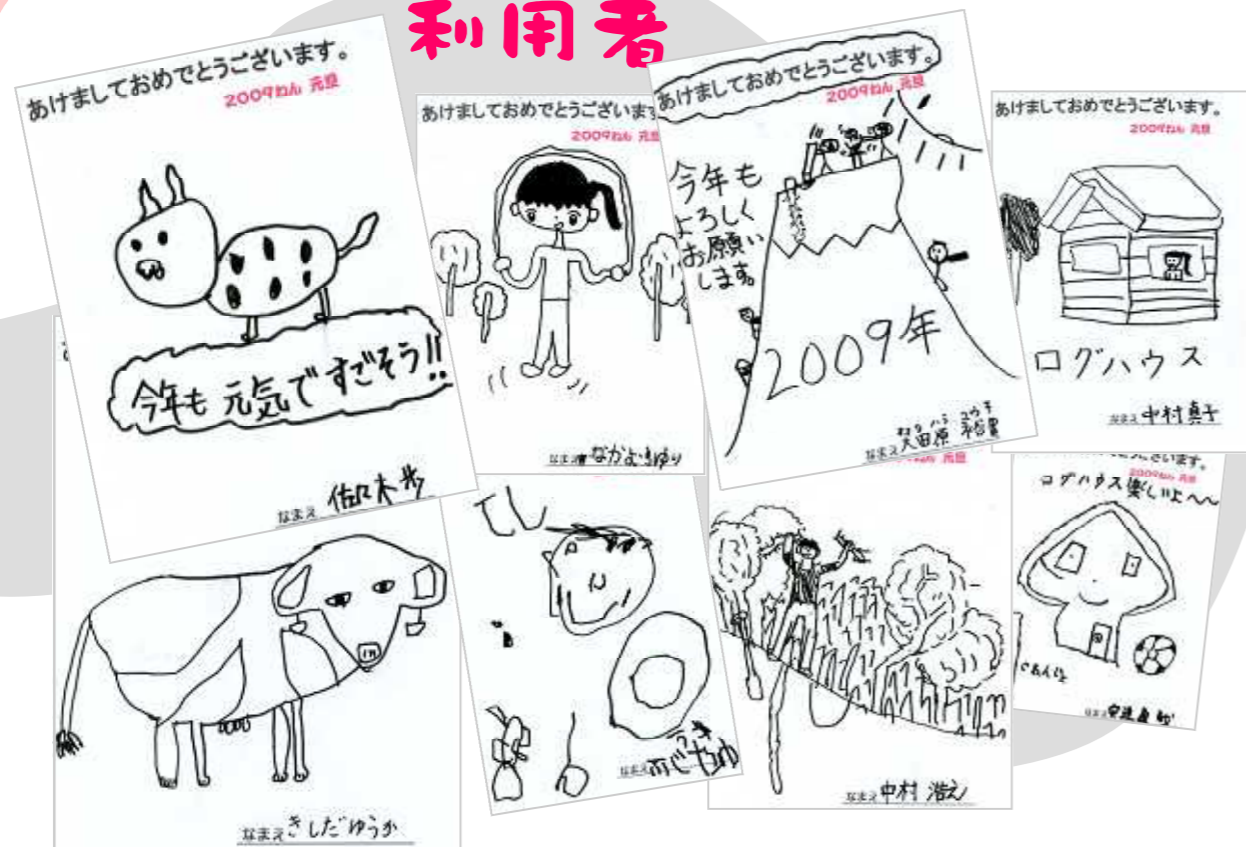 利用者
あけましておめでとうございます。
2009ねん 元旦
今年も元気ですごそう!!
なまえ 佐々木歩
あけましておめでとうございます
2009ねん 元旦
なまえ
あけましておめでとうございます。
2009ねん 元旦
今年も
よろしく
お願い
します。
2009年
なまえ 大田原
あけましておめでとうございます。
2009ねん 元旦
ログハウス
なまえ 中村真子
なまえ きしだゆうか
なまえ
元旦
なまえ 中村 浩之
ございます。
2009ねん 元旦
ログハウス楽しいよ〜〜
なまえ